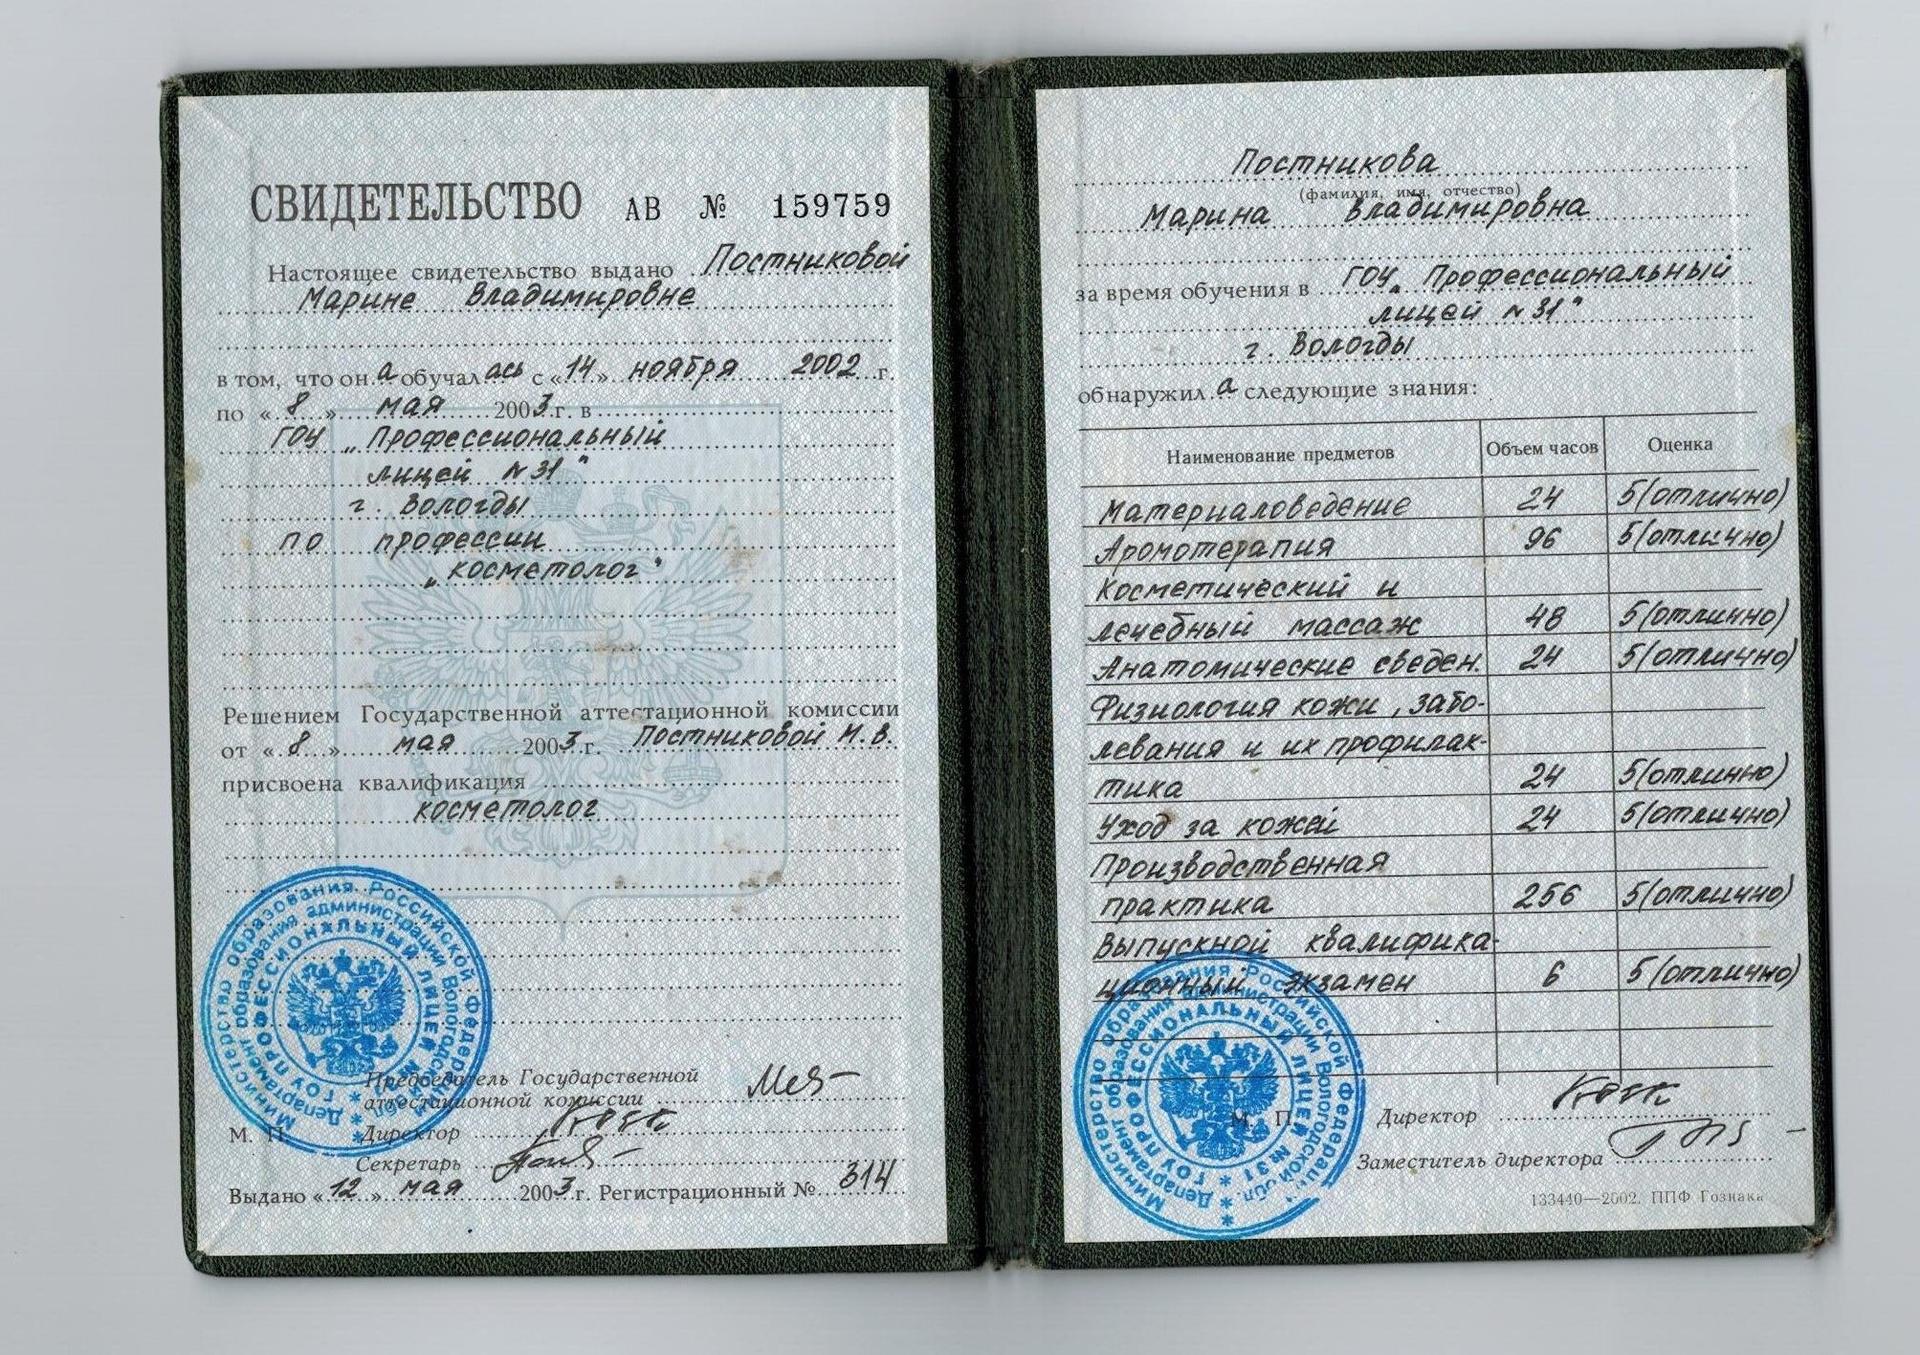 СВИДЕТЕЛЬСТВО АВ № 159759
Настоящее свидетельство выдано Постниковой
Марине Владимировне
в том, что он а обучал ась с «14» ноября 2002 г.
по «8» мая 2003 г. в
ГОУ „Профессиональный
лицей №31"
г. Вологды
по профессии
„косметолог"
Решением Государственной аттестационной комиссии
от «8» мая 2003 г. Постниковой М. В.
присвоена квалификация
косметолог
Председатель Государственной
аттестационной комиссии
М. П. Директор
Секретарь
Выдано «12» мая 2003 г. Регистрационный № 314
Министерство образования Российской Федерации
Департамент образования администрации Вологодской обл.
ГОУ ПРОФЕССИОНАЛЬНЫЙ ЛИЦЕЙ №
Постникова
(фамилия, имя, отчество)
Марина Владимировна
за время обучения в ГОУ „Профессиональный
лицей №31"
г. Вологды
обнаружил а следующие знания:
Наименование предметов Объем часов Оценка
Материаловедение 24 5(отлично)
Аромотерапия 96 5(отлично)
Косметический и
лечебный массаж 48 5(отлично)
Анатомические сведен. 24 5(отлично)
Физиология кожи, забо-
левания и их профилак-
тика 24 5(отлично)
Уход за кожей 24 5(отлично)
Производственная
практика 256 5(отлично)
Выпускной квалифика-
ционный экзамен 6 5(отлично)
М. П. Директор
Заместитель директора
133440—2002. ППФ Гознака
Министерство образования Российской Федерации
Департамент образования администрации Вологодской обл.
ГОУ ПРОФЕССИОНАЛЬНЫЙ ЛИЦЕЙ №31